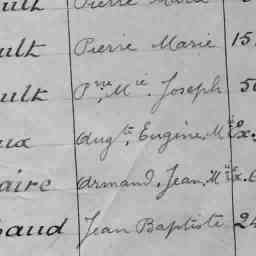 ult Pierre Marie
ult Pierre Marie 15
ult Pre Mie Joseph 50
ux Augte, Eugène, Mie Ex.
aire Armand, Jean, Mie Ex.
baud Jean Baptiste 24